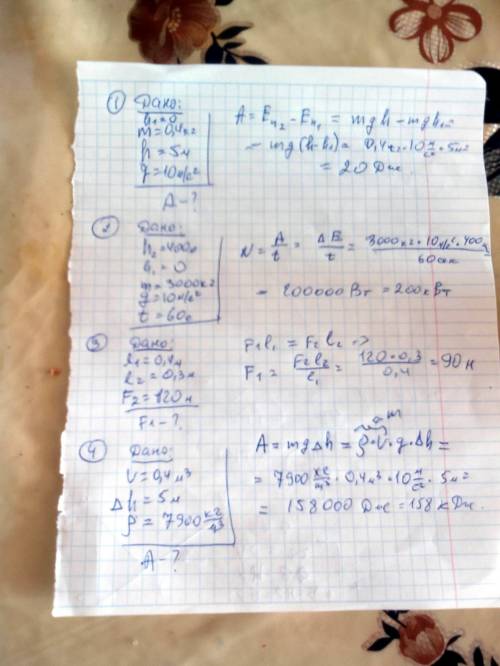 ① Дано:
h₁=0
m=0,4кг
h=5м
g=10м/с²
A-?
A = Eₙ₂ - Eₙ₁ = mgh - mgh₁=
= mg(h-h₁) = 0,4кг·10 м/с² · 5м=
= 20 Дж.
② Дано:
h₂=400м
h₁=0
m=3000кг
g=10м/с²
t=60с
N = A/t = ΔE/t = 3000кг·10м/с²·400м/60сек
= 200000Вт =200кВт
③ Дано:
l₁=0,4м
l₂=0,3м
F₂=120н
F₁-?
F₁l₁ = F₂l₂ =>
F₁ = F₂l₂/l₁ = 120·0,3/0,4 =90н
④ Дано:
V=0,4м³
Δh=5м
ρ=7900 кг/м³
A-?
m
A = mgΔh = ρ·V·g·Δh =
= 7900 кг/м³ · 0,4м³ · 10 м/с² · 5м=
= 158000 Дж=158кДж.